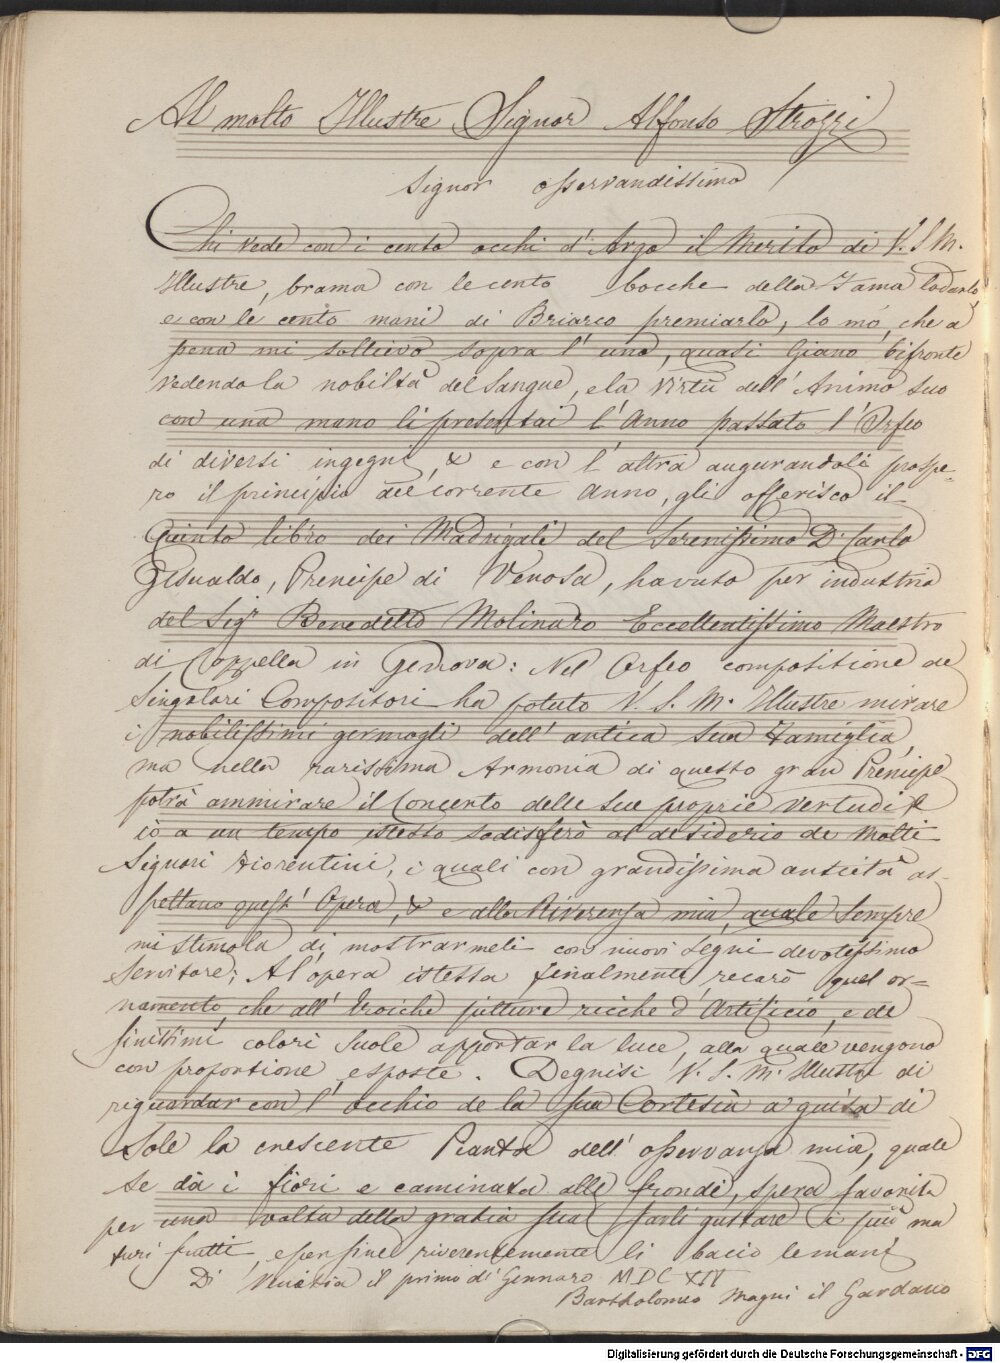 Al molto Illustre Signor Alfonso Strozzi
Signor osservandissimo
Chi vede con i cento occhi d'Argo il Merito di V. S. M.
Illustre, brama con le cento bocche della Fama lodarlo
e con le cento mani di Briareo premiarlo, Io mò, che a
pena mi sollievo sopra l'una, quasi Giano bifronte
vedendo la nobiltà del Sangue, e la Virtù dell'Animo suo
con una mano li presentai l'Anno passato l'Orfeo
di diversi ingegni, & e con l'altra augurandoli prospe-
ro il principio del corrente Anno, gli offerisco il
Quinto libro dei Madrigali del Serenissimo D. Carlo
Gesualdo, Prencipe di Venosa, havuto per industria
del Sigr Benedetto Molinaro Eccellentissimo Maestro
di Cappella in Genova: Nel Orfeo compositione de
Singolari Compositori ha potuto V. S. M. Illustre mirare
i nobilissimi germogli dell'antica sua Famiglia,
ma nella rarissima Armonia di questo gran Prencipe
potrà ammirare il Concento delle sue proprie vertudi &
iò a un tempo istesso sodisferò al desiderio de molti
Signori Fiorentini, i quali con grandissima ansietà as-
pettano quest'Opera, & e alla Riverenza mia, quale sempre
mi stimola di mostrarmeli con nuovi segni devotissimo
Servitore; Al'opera istessa finalmente recarò quel or=
namento, che all'Eroiche pitture ricche d'Artificio, e de
finissimi colori suole apportar la luce, alla quale vengono
con proportione esposte. Degnisi V. S. M. Illustre di
riguardar con l'occhio de la sua Cortesia a guisa di
Sole la crescente Pianta dell'osservanza mia, quale
se dà i fiori e caminata alle frondi, spera favorita
per una volta della gratia sua farli gustare i più ma
turi frutti, e per fine riverentemente li bacio le mani
Di Venetia il primo di Gennaro MDCXIV
Bartholomeo Magni il Gardano
Digitalisierung gefördert durch die Deutsche Forschungsgemeinschaft - DFG